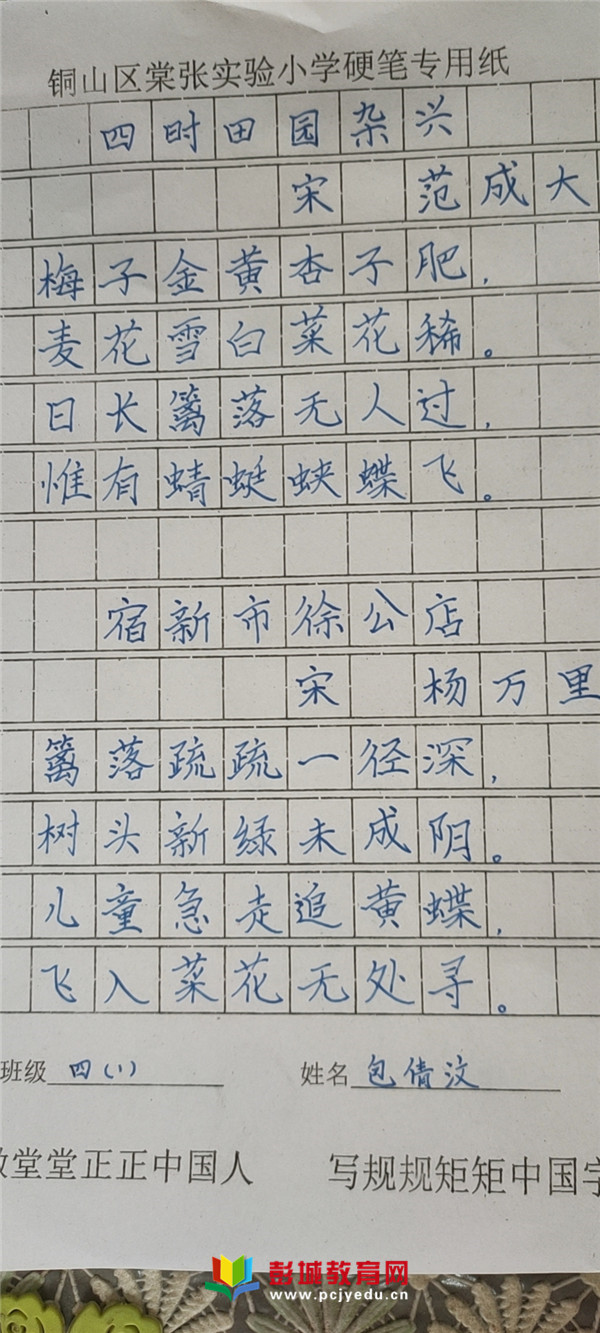 铜山区棠张实验小学硬笔专用纸
四时田园杂兴
宋 范成大
梅子金黄杏子肥，
麦花雪白菜花稀。
日长篱落无人过，
惟有蜻蜓蛱蝶飞。
宿新市徐公店
宋 杨万里
篱落疏疏一径深，
树头新绿未成阴。
儿童急走追黄蝶，
飞入菜花无处寻。
班级 四(1) 姓名 包倩汶
做堂堂正正中国人 写规规矩矩中国字
彭城教育网
www.pcjyedu.cn